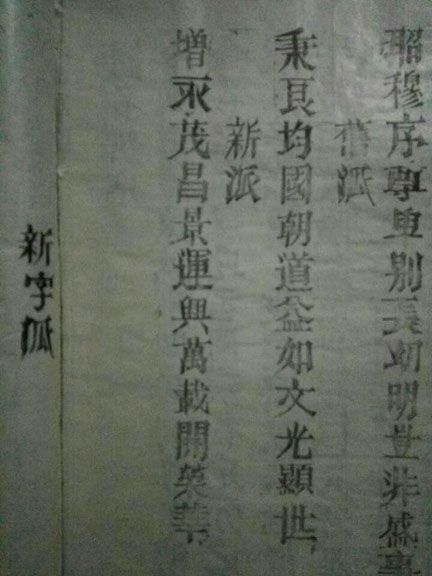 昭穆序尊卑别長幼明豈非盛事
舊派
秉良均國朝道益如文光顯世
新派
增永茂昌景運興萬載開榮華
新字派